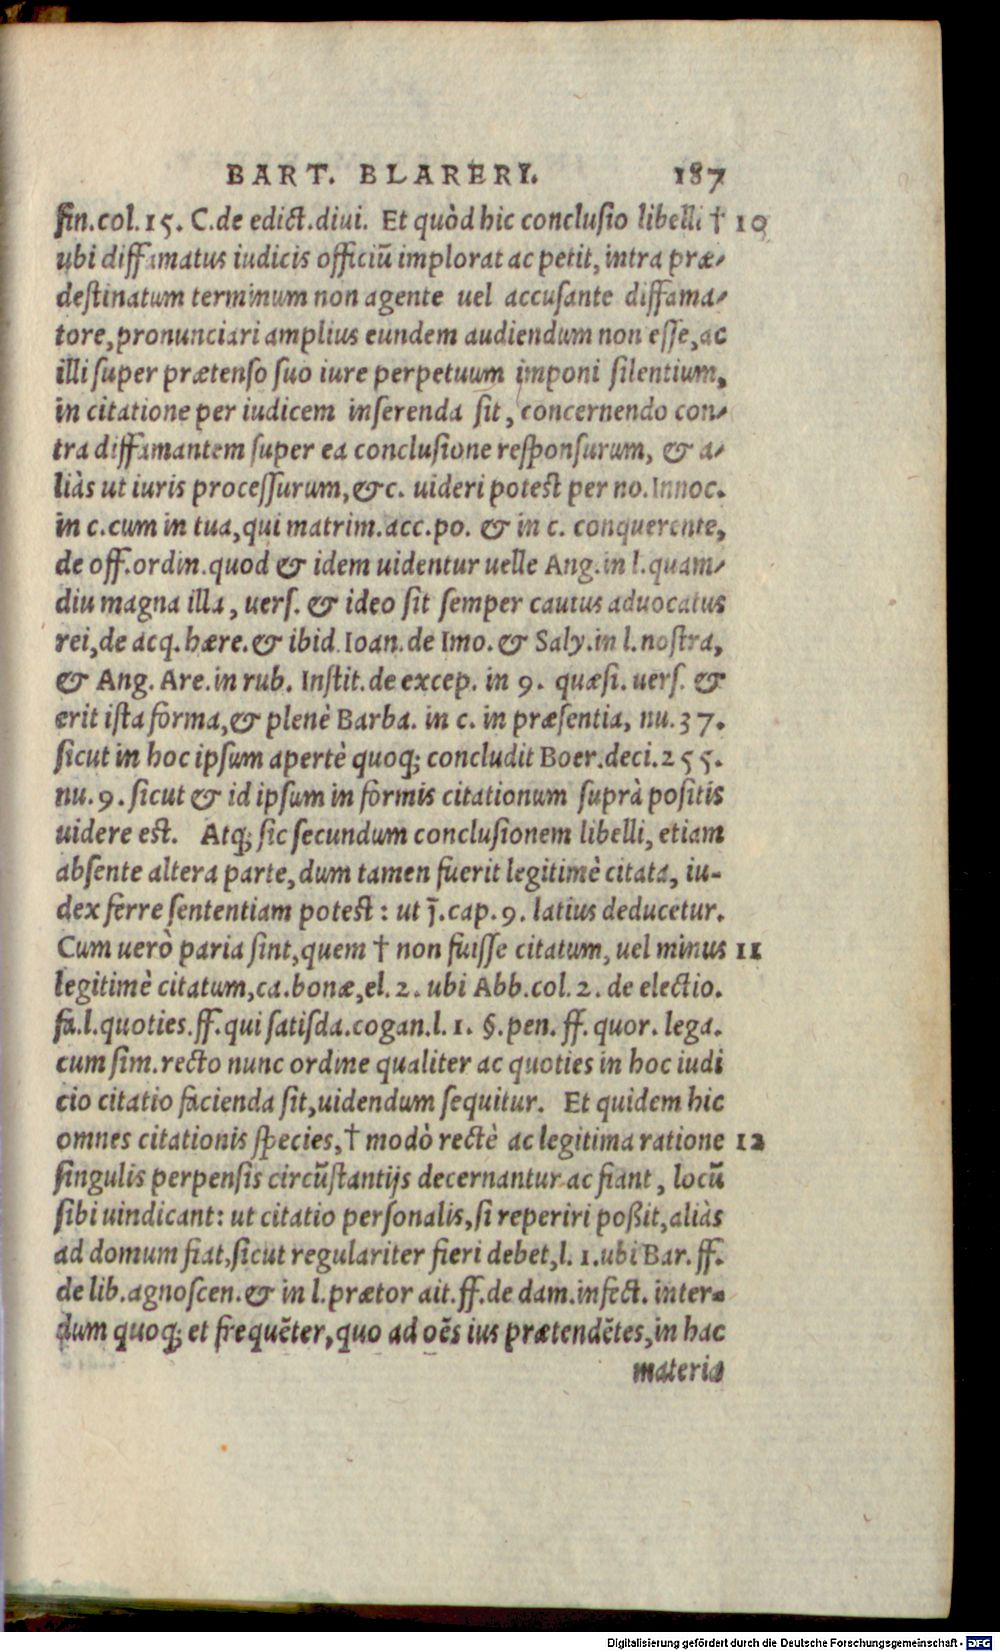 BART. BLARERI. 187
fin.col.15. C.de edict.diui. Et quòd hic conclusio libelli † 10
ubi diffamatus iudicis officiũ implorat ac petit, intra præ-
destinatum terminum non agente uel accusante diffama-
tore, pronunciari amplius eundem audiendum non esse, ac
illi super prætenso suo iure perpetuum imponi silentium,
in citatione per iudicem inserenda sit, concernendo con-
tra diffamantem super ea conclusione responsurum, & a-
liàs ut iuris processurum, &c. uideri potest per no. Innoc.
in c.cum in tua, qui matrim.acc.po. & in c. conquerente,
de off.ordin.quod & idem uidentur uelle Ang.in l.quam-
diu magna illa, uers. & ideo sit semper cautus aduocatus
rei, de acq.hære.& ibid.Ioan.de Imo.& Saly.in l.nostra,
& Ang. Are.in rub. Instit.de excep. in 9. quæsi. uers. &
erit ista forma, & plenè Barba. in c. in præsentia, nu.37.
sicut in hoc ipsum apertè quoq; concludit Boer.deci.255.
nu.9.sicut & id ipsum in formis citationum suprà positis
uidere est. Atq; sic secundum conclusionem libelli, etiam
absente altera parte, dum tamen fuerit legitimè citata, iu-
dex ferre sententiam potest: ut j̄.cap.9. latius deducetur.
Cum uerò paria sint, quem † non fuisse citatum, uel minus 11
legitimè citatum, ca.bonæ, el.2. ubi Abb.col.2. de electio.
fa.l.quoties.ff.qui satisda.cogan.l. 1. §.pen. ff. quor. lega.
cum sim.recto nunc ordine qualiter ac quoties in hoc iudi
cio citatio facienda sit, uidendum sequitur. Et quidem hic
omnes citationis species, † modò rectè ac legitima ratione 12
singulis perpensis circũstantijs decernantur ac fiant, locũ
sibi uindicant: ut citatio personalis, si reperiri poßit, aliàs
ad domum fiat, sicut regulariter fieri debet, l. 1.ubi Bar.ff.
de lib.agnoscen.& in l.prætor ait.ff.de dam.infect. inter-
dum quoq; et frequẽter, quo ad oẽs ius prætendẽtes, in hac
materia
Digitalisierung gefördert durch die Deutsche Forschungsgemeinschaft - DFG